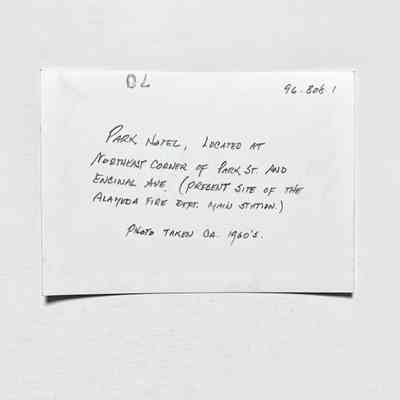 70
96.806 1
PARK HOTEL, LOCATED AT
NORTHEAST CORNER OF PARK ST. AND
ENCINAL AVE. (PRESENT SITE OF THE
ALAMEDA FIRE DEPT. MAIN STATION.)
PHOTO TAKEN CA. 1960'S.